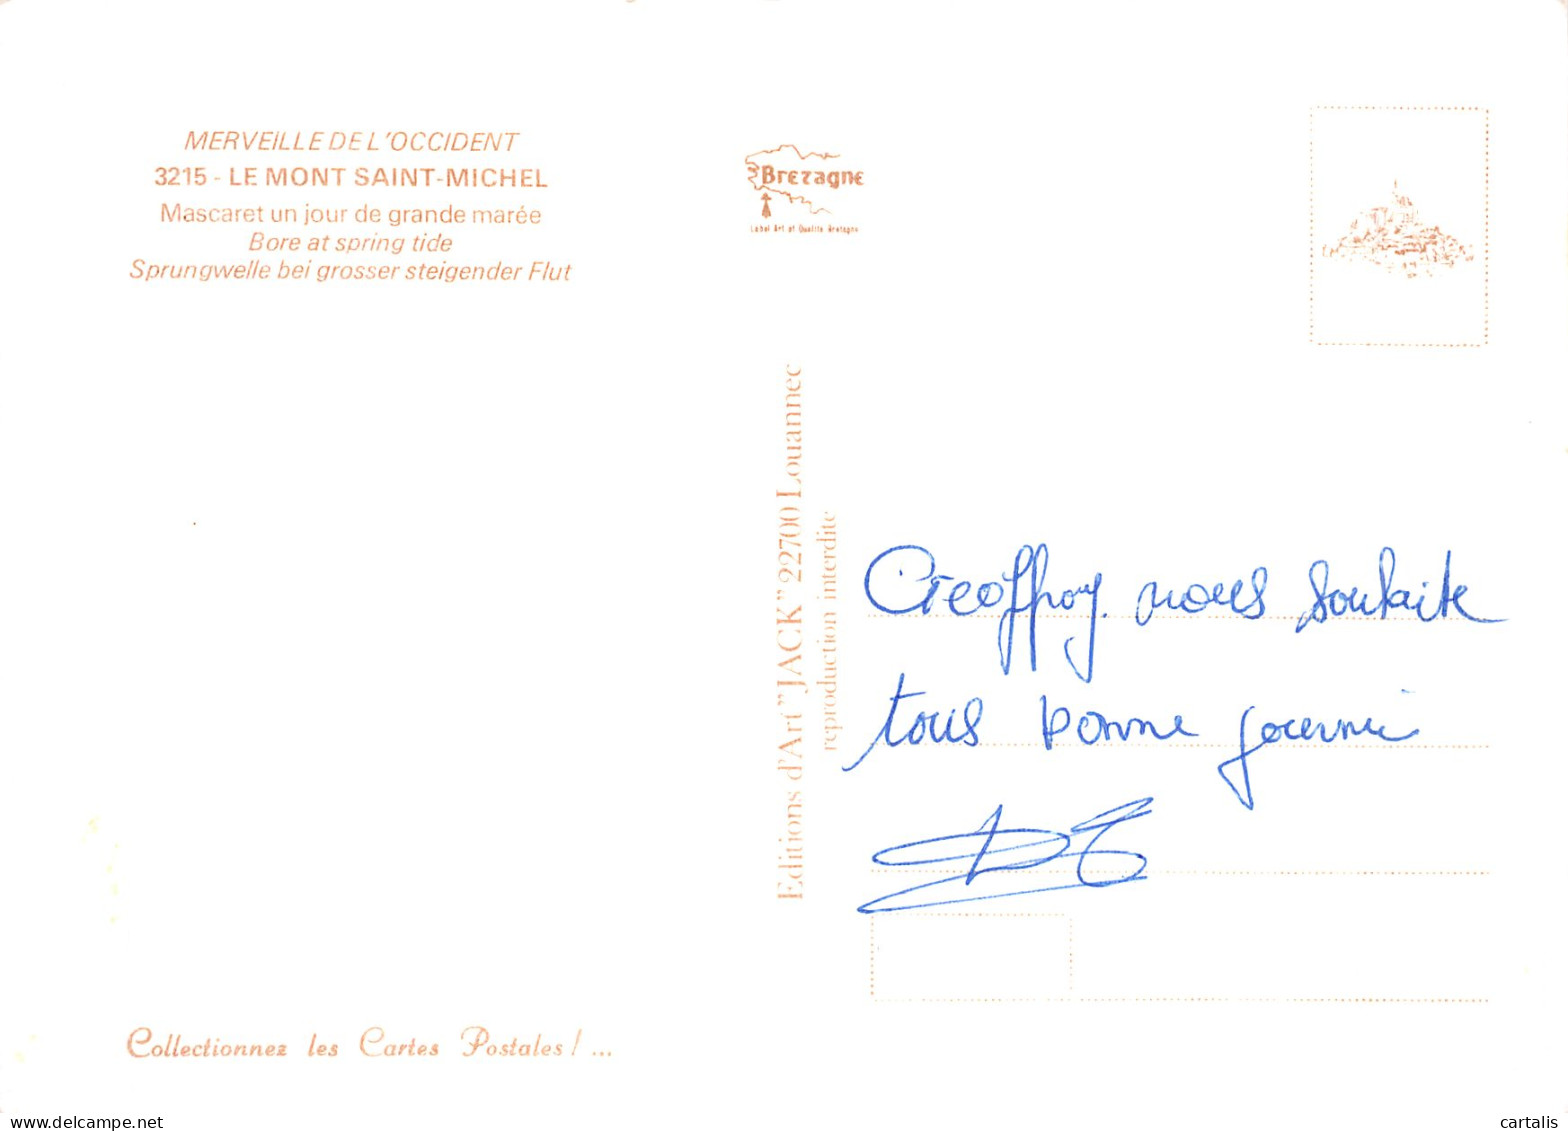 MERVEILLE DE L'OCCIDENT
3215 - LE MONT SAINT-MICHEL
Mascaret un jour de grande marée
Bore at spring tide
Sprungwelle bei grosser steigender Flut
Bretagne
Label Art et Qualité Bretagne
Editions d'Art "JACK" 22700 Louannec
reproduction interdite
Geoffroy nous souhaite
tous bonne journei
Collectionnez les Cartes Postales ! ...
cartalis